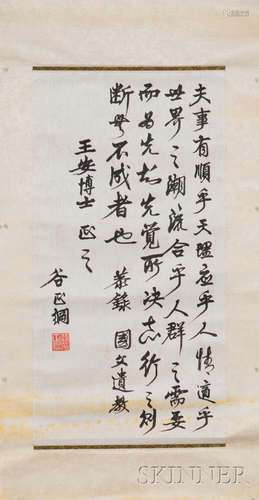 夫事有順乎天理應乎人情適乎
世界之潮流合乎人群之需要
而為先知先覺所決志行之則
斷無不成者也 恭錄 國父遺教
王安博士 正之
谷正綱
SKINNER